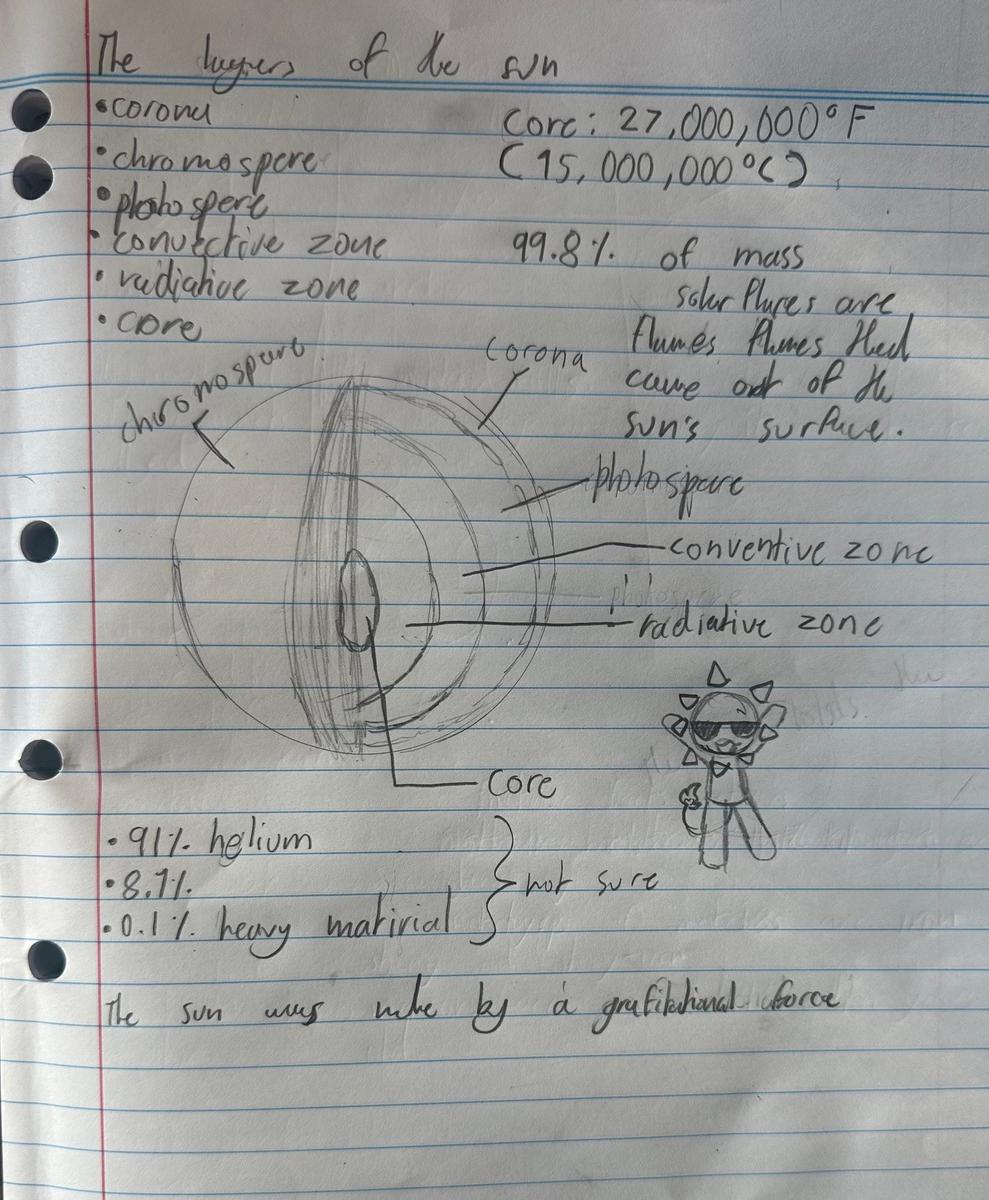 The layers of the sun
•corona
•chromospere
•photospere
•convective zone
•radiative zone
•core
Core: 27,000,000°F
(15,000,000°C)
99.8% of mass
solar flares are
flames flames that
came out of the
sun's surface.
chromospare
corona
photospare
conventive zone
radiative zone
core
•91% helium
•8.7%
•0.1% heavy matirial
not sure
The sun was make by a grafitational force